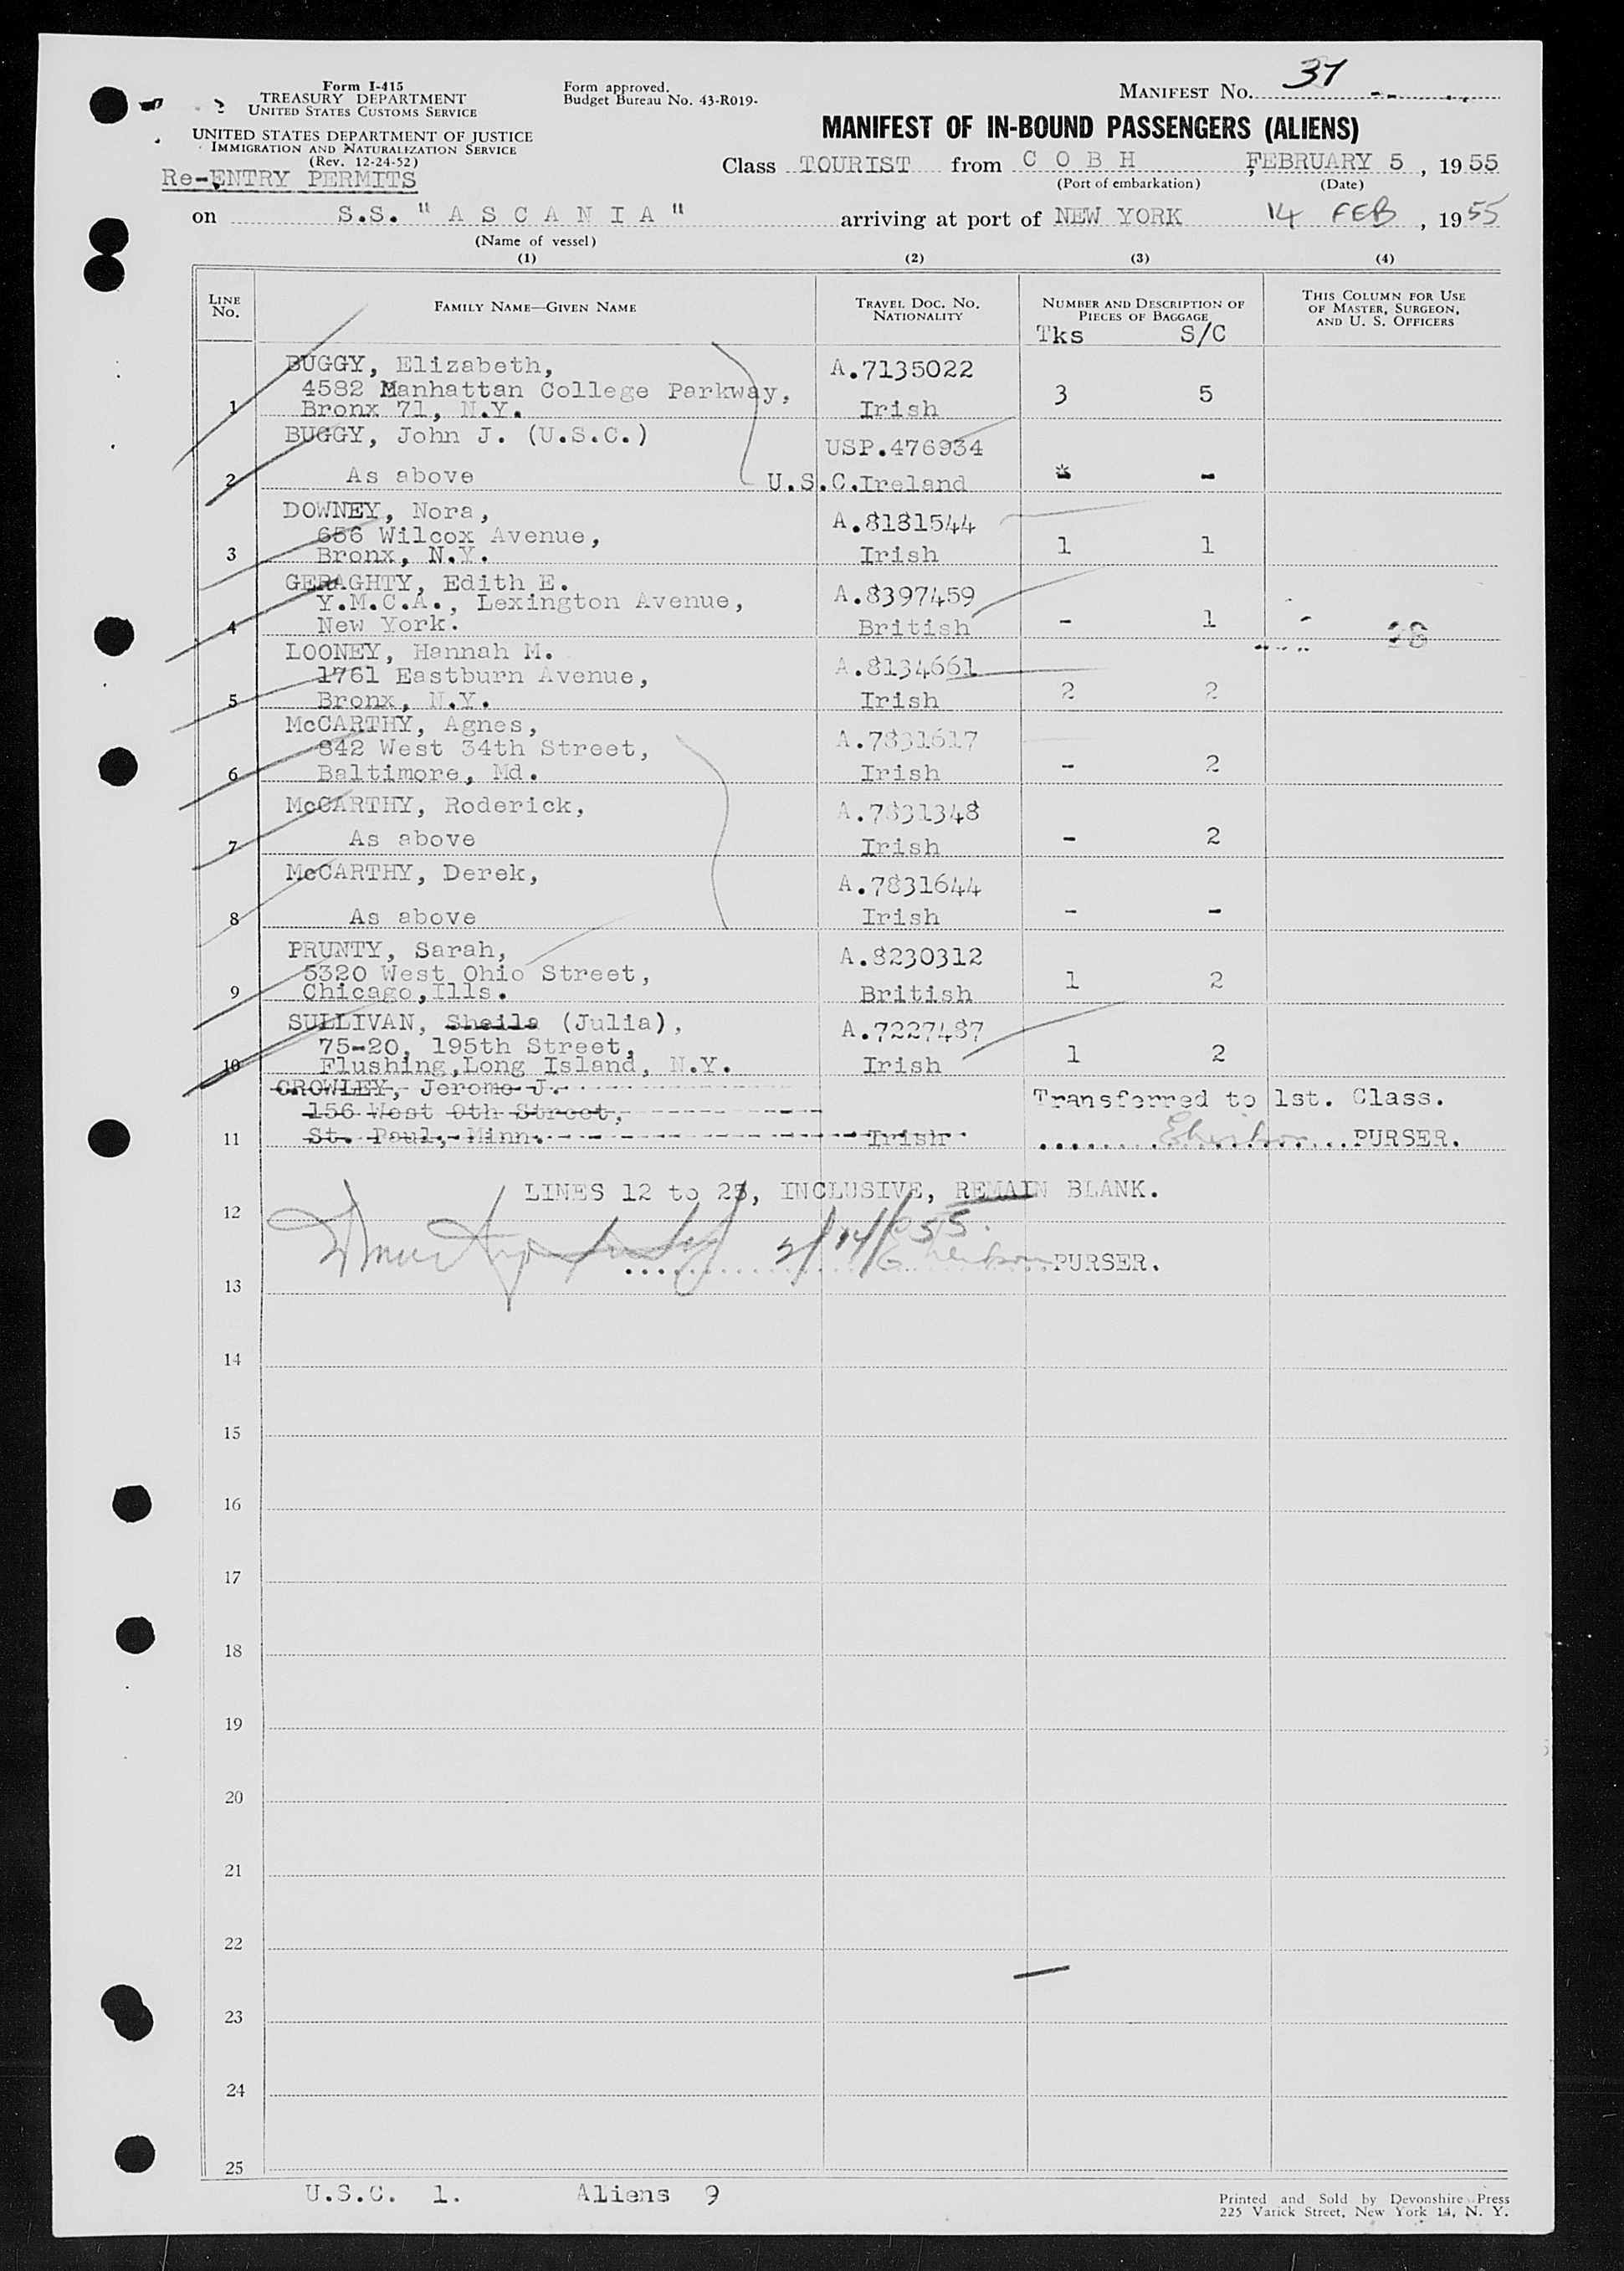 Form I-415
TREASURY DEPARTMENT
UNITED STATES CUSTOMS SERVICE
UNITED STATES DEPARTMENT OF JUSTICE
IMMIGRATION AND NATURALIZATION SERVICE
(Rev. 12-24-52)
Re-ENTRY PERMITS
Form approved.
Budget Bureau No. 43-R019-
MANIFEST NO. 37
MANIFEST OF IN-BOUND PASSENGERS (ALIENS)
Class TOURIST from C O B H, FEBRUARY 5, 1955
(Port of embarkation) (Date)
on S.S. "A S C A N I A" arriving at port of NEW YORK 14 FEB, 1955
(Name of vessel)
(1) (2) (3) (4)
LINE NO. FAMILY NAME—GIVEN NAME TRAVEL DOC. NO. NATIONALITY NUMBER AND DESCRIPTION OF PIECES OF BAGGAGE THIS COLUMN FOR USE OF MASTER, SURGEON, AND U. S. OFFICERS
Tks S/C
BUGGY, Elizabeth, A.7135022
4582 Manhattan College Parkway, 3 5
1 Bronx 71, N.Y. Irish
BUGGY, John J. (U.S.C.) USP.476934
2 As above U.S.C.Ireland * -
DOWNEY, Nora, A.8181544
656 Wilcox Avenue,
3 Bronx, N.Y. Irish 1 1
GERAGHTY, Edith E. A.8397459
Y.M.C.A., Lexington Avenue,
4 New York. British - 1
LOONEY, Hannah M. A.8134661
1761 Eastburn Avenue,
5 Bronx, N.Y. Irish 2 2
McCARTHY, Agnes, A.7831617
842 West 34th Street,
6 Baltimore, Md. Irish - 2
McCARTHY, Roderick, A.7831348
7 As above Irish - 2
McCARTHY, Derek, A.7831644
8 As above Irish - -
PRUNTY, Sarah, A.8230312
5320 West Ohio Street, 1 2
9 Chicago,Ills. British
SULLIVAN, Sheila (Julia), A.7227487
75-20, 195th Street,
10 Flushing,Long Island, N.Y. Irish 1 2
CROWLEY, Jerome J.
156 West 9th Street, Transferred to 1st. Class.
11 St. Paul, Minn. Irish PURSER.
LINES 12 to 25, INCLUSIVE, REMAIN BLANK.
12
2/14/55.
PURSER.
13
14
15
16
17
18
19
20
21
22
23
24
25
U.S.C. 1. Aliens 9
Printed and Sold by Devonshire Press
225 Varick Street, New York 14, N. Y.